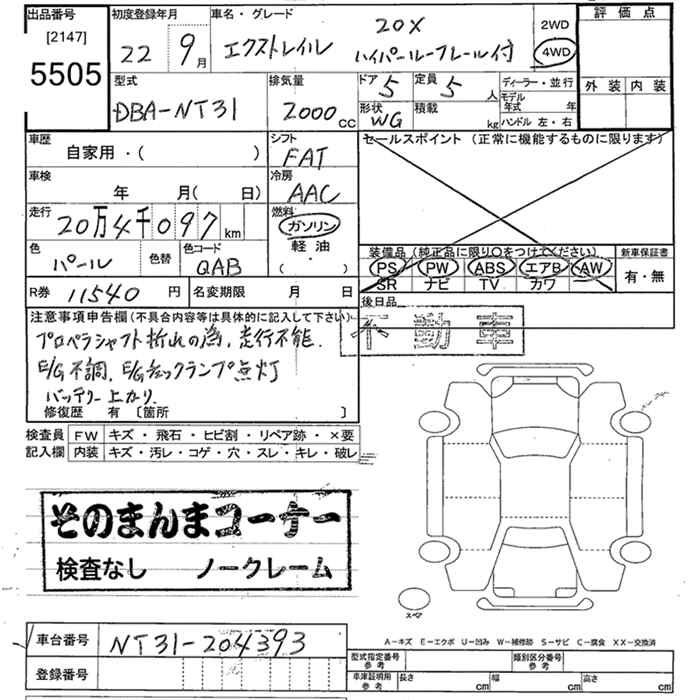 出品番号 [2147] 5505
初度登録年月 22 9月
車名・グレード エクストレイル 20X ハイパールーフレール付
2WD
4WD
評価点
外装 内装
型式 DBA-NT31
排気量 2000cc
ドア 5 定員 5人
形状 WG 積載 kg
ディーラー・並行
モデル年式 年
ハンドル 左・右
車歴 自家用・( )
シフト FAT
セールスポイント (正常に機能するものに限ります)
車検 年 月( 日)
冷房 AAC
走行 20万4千097km
燃料 ガソリン
軽油
( ・ )
色 パール 色替 色コード QAB
装備品(純正品に限り○をつけてください)
PS PW ABS エアB AW
SR ナビ TV カワ
新車保証書
有・無
R券 11540円 名変期限 月 日
後日品
不動車
注意事項申告欄(不具合内容等は具体的に記入して下さい)
プロペラシャフト折れの為、走行不能.
E/G不調、E/Gチェックランプ点灯
バッテリー上がり.
修復歴 有 〔箇所 〕
検査員 FW キズ・飛石・ヒビ割・リペア跡・×要
記入欄 内装 キズ・汚レ・コゲ・穴・スレ・キレ・破レ
そのまんまコーナー
検査なし ノークレーム
スペア
A-キズ E-エクボ U-凹み W-補修跡 S-サビ C-腐食 XX-交換済
車台番号 NT31-204393
登録番号
型式指定番号 参考 類別区分番号 参考
車庫証明用 参考 長さ cm 幅 cm 高さ cm